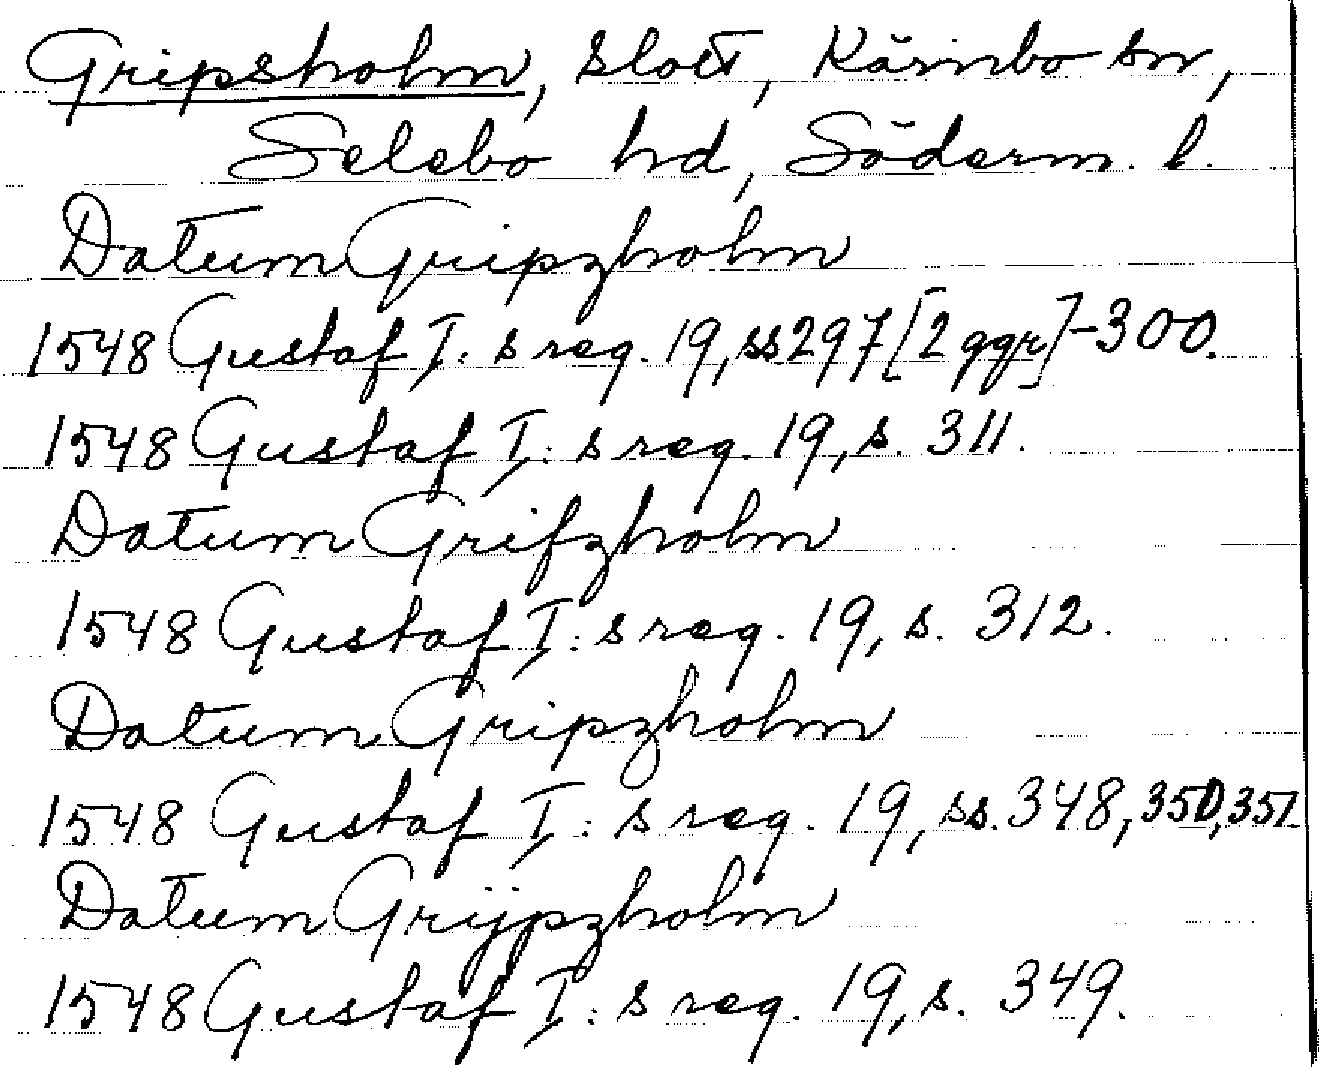 Gripsholm, slott, Kärnbo sn,
Selebo hd, Söderm. l.
Datum Gripzholm
1548 Gustaf I: s reg. 19, ss 297 [2 ggr] - 300.
1548 Gustaf I: s reg. 19, s. 311.
Datum Grifzholm
1548 Gustaf I: s reg. 19, s. 312.
Datum Gripzholm
1548 Gustaf I: s reg. 19, ss. 348, 350, 351
Datum Grijpzholm
1548 Gustaf I: s reg. 19, s. 349.